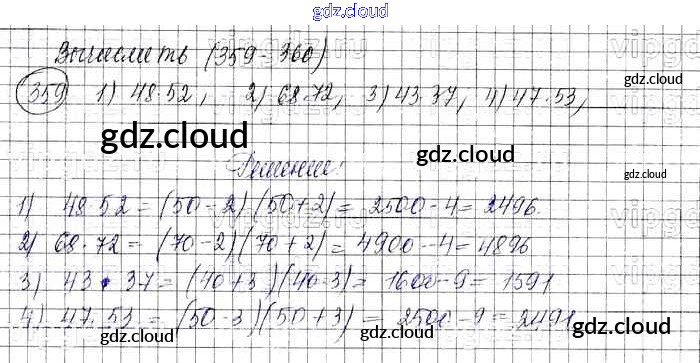 gdz.cloud
Вычислить (359-360)
359 1) 48·52, 2) 68·72, 3) 43·37, 4) 47·53,
gdz.cloud
gdz.cloud
gdz.cloud
Решение:
1) 48·52 = (50-2)(50+2) = 2500-4 = 2496.
2) 68·72 = (70-2)(70+2) = 4900-4 = 4896
3) 43·37 = (40+3)(40-3) = 1600-9 = 1591
4) 47·53 = (50-3)(50+3) = 2500-9 = 2491
gdz.cloud
gdz.cloud
gdz.cloud
gdz.cloud